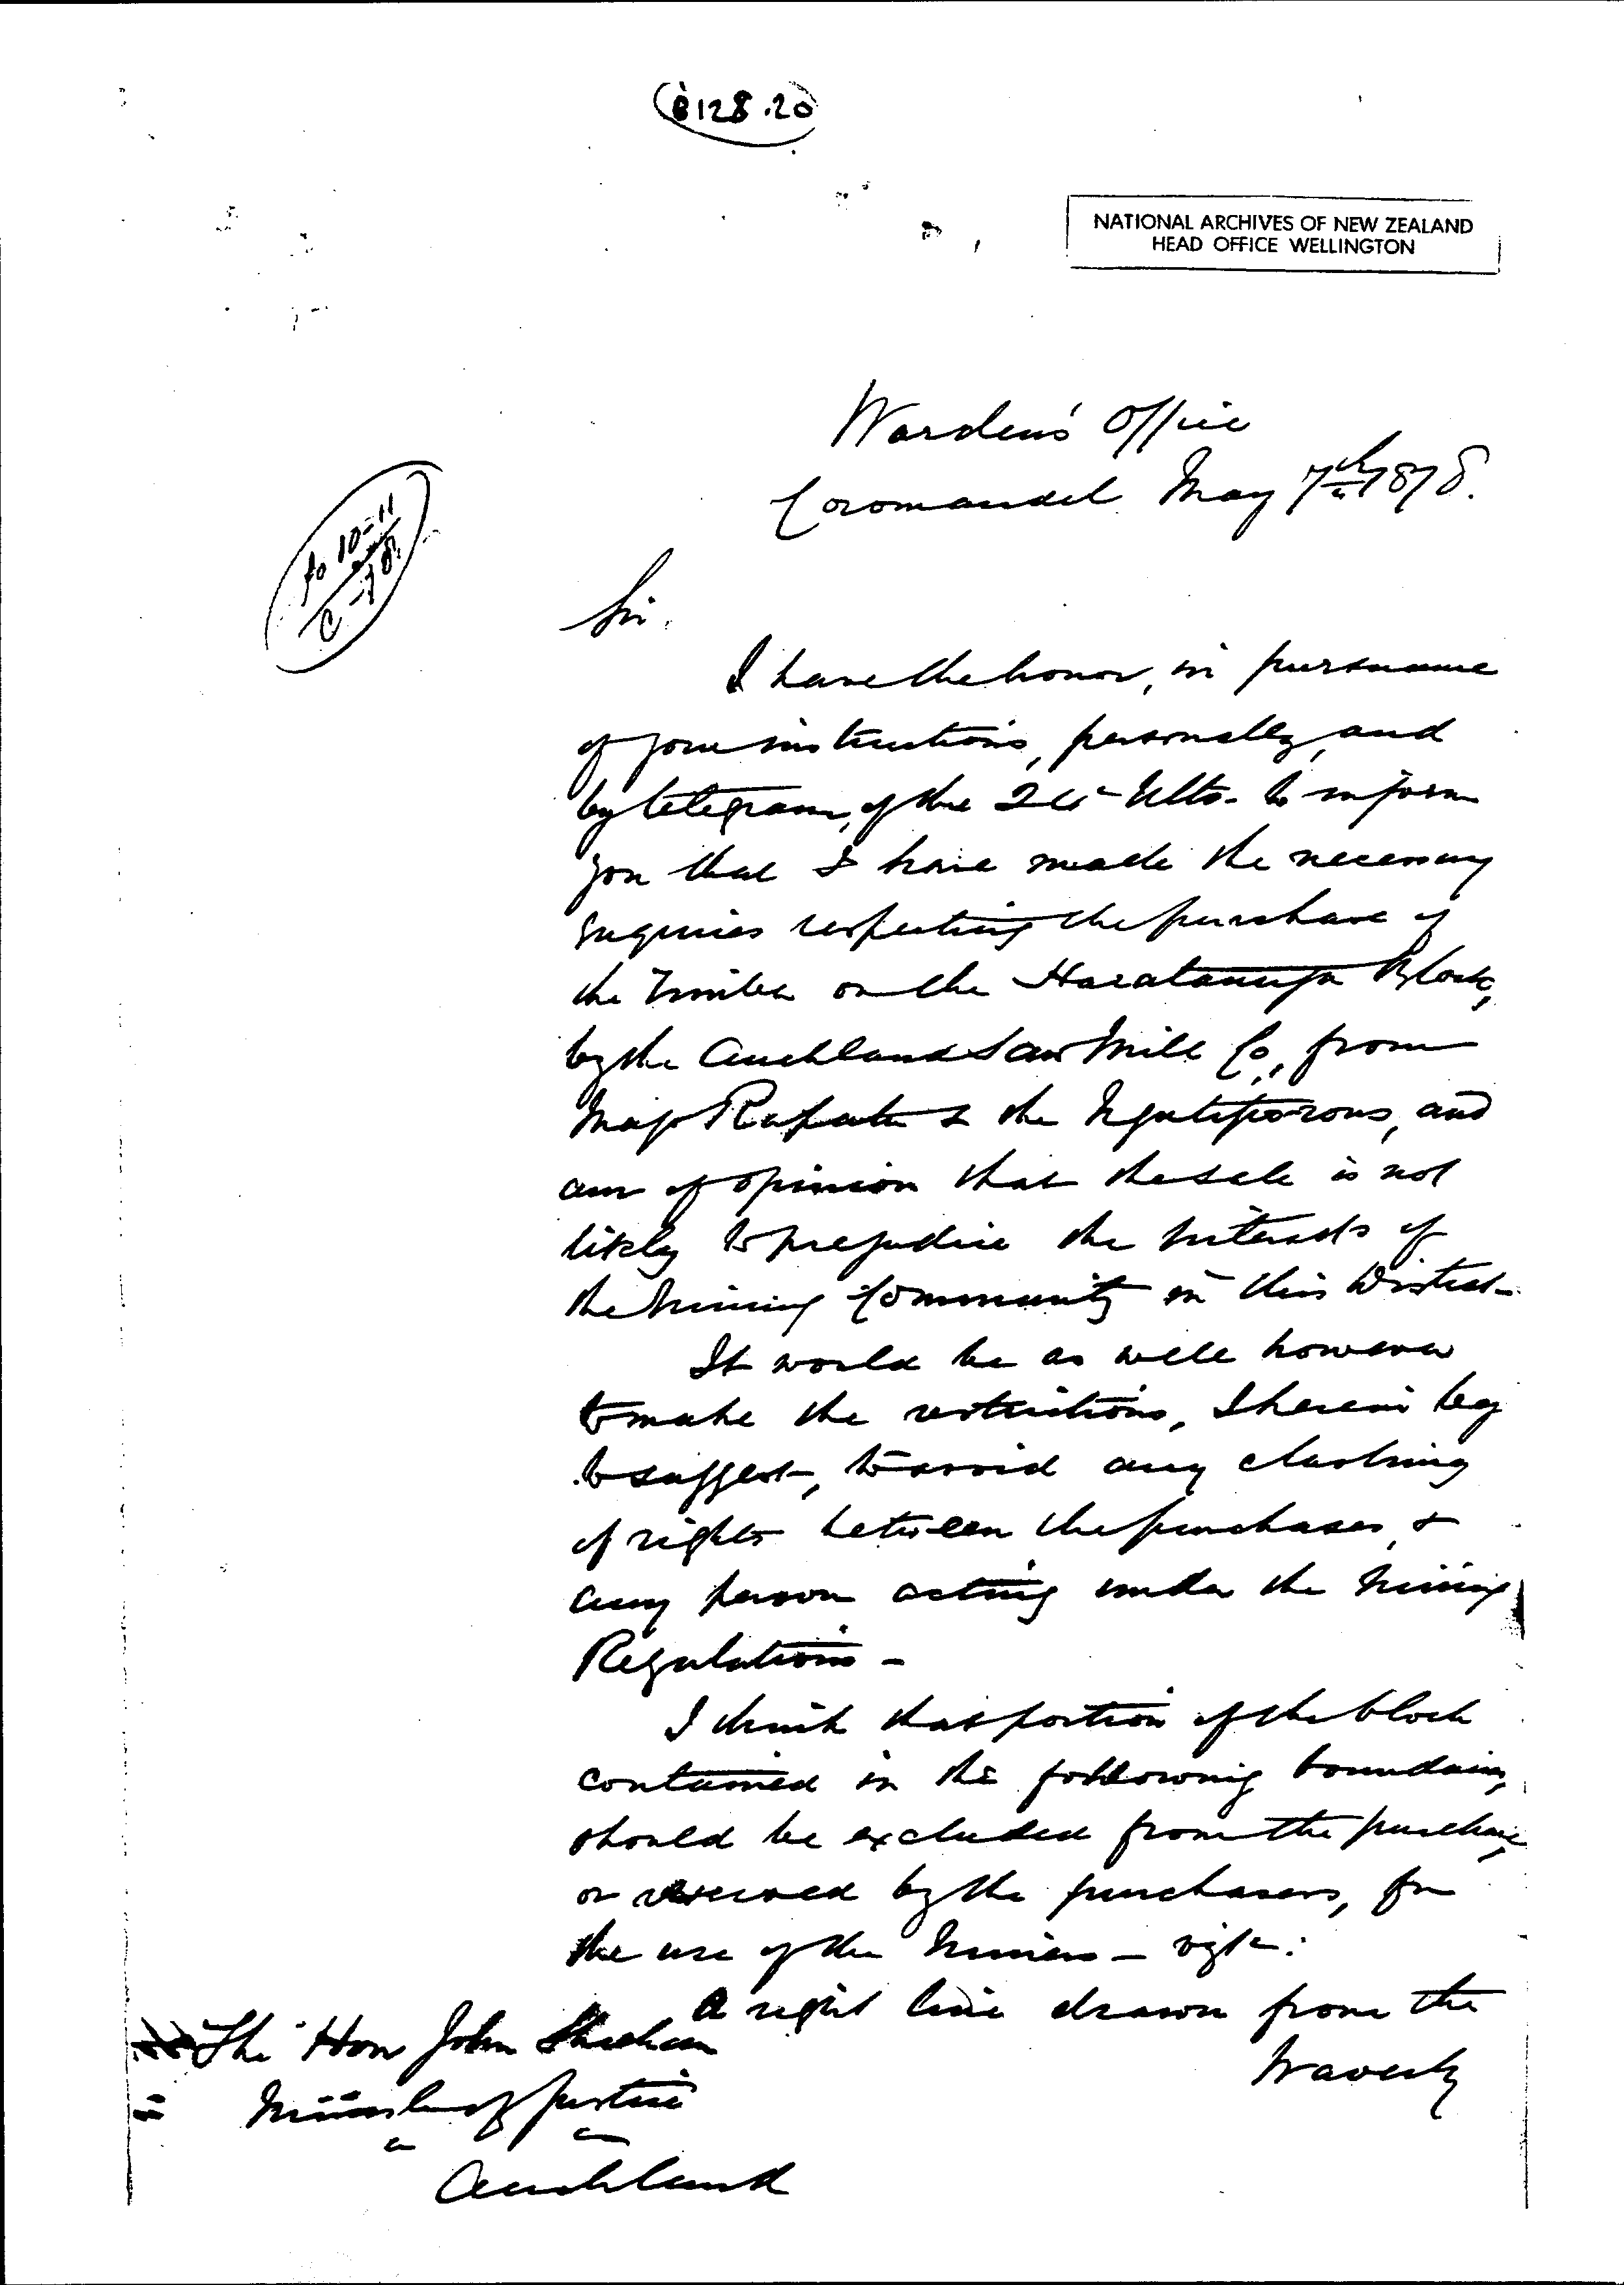 128.20
NATIONAL ARCHIVES OF NEW ZEALAND
HEAD OFFICE WELLINGTON
Warden's Office
Coromandel May 7th 1878.
Sir.
I have the honor, in pursuance
of your instructions, personally, and
by telegram, of the Ulto. to inform
you that I have made the necessary
enquiries respecting the purchase of
the Timber on the Harataunga Block,
by the Auckland Saw Mill Co., from
Majr Ropata & the Ngatiporous, and
am of opinion that the sale is not
likely to prejudice the interests of
the Mining Community in this District -
It would be as well however
to make the restrictions, I herein beg
to suggest, to avoid any clashing
of rights between the purchasers, &
any person acting under the Mining
Regulations -
I think that portion of the block
contained in the following boundaries,
should be excluded from the purchase,
or reserved by the purchasers, for
the use of the Miners - vizt:
A right line drawn from the
Waverly
The Hon John Sheehan
Minister of Justice
Auckland